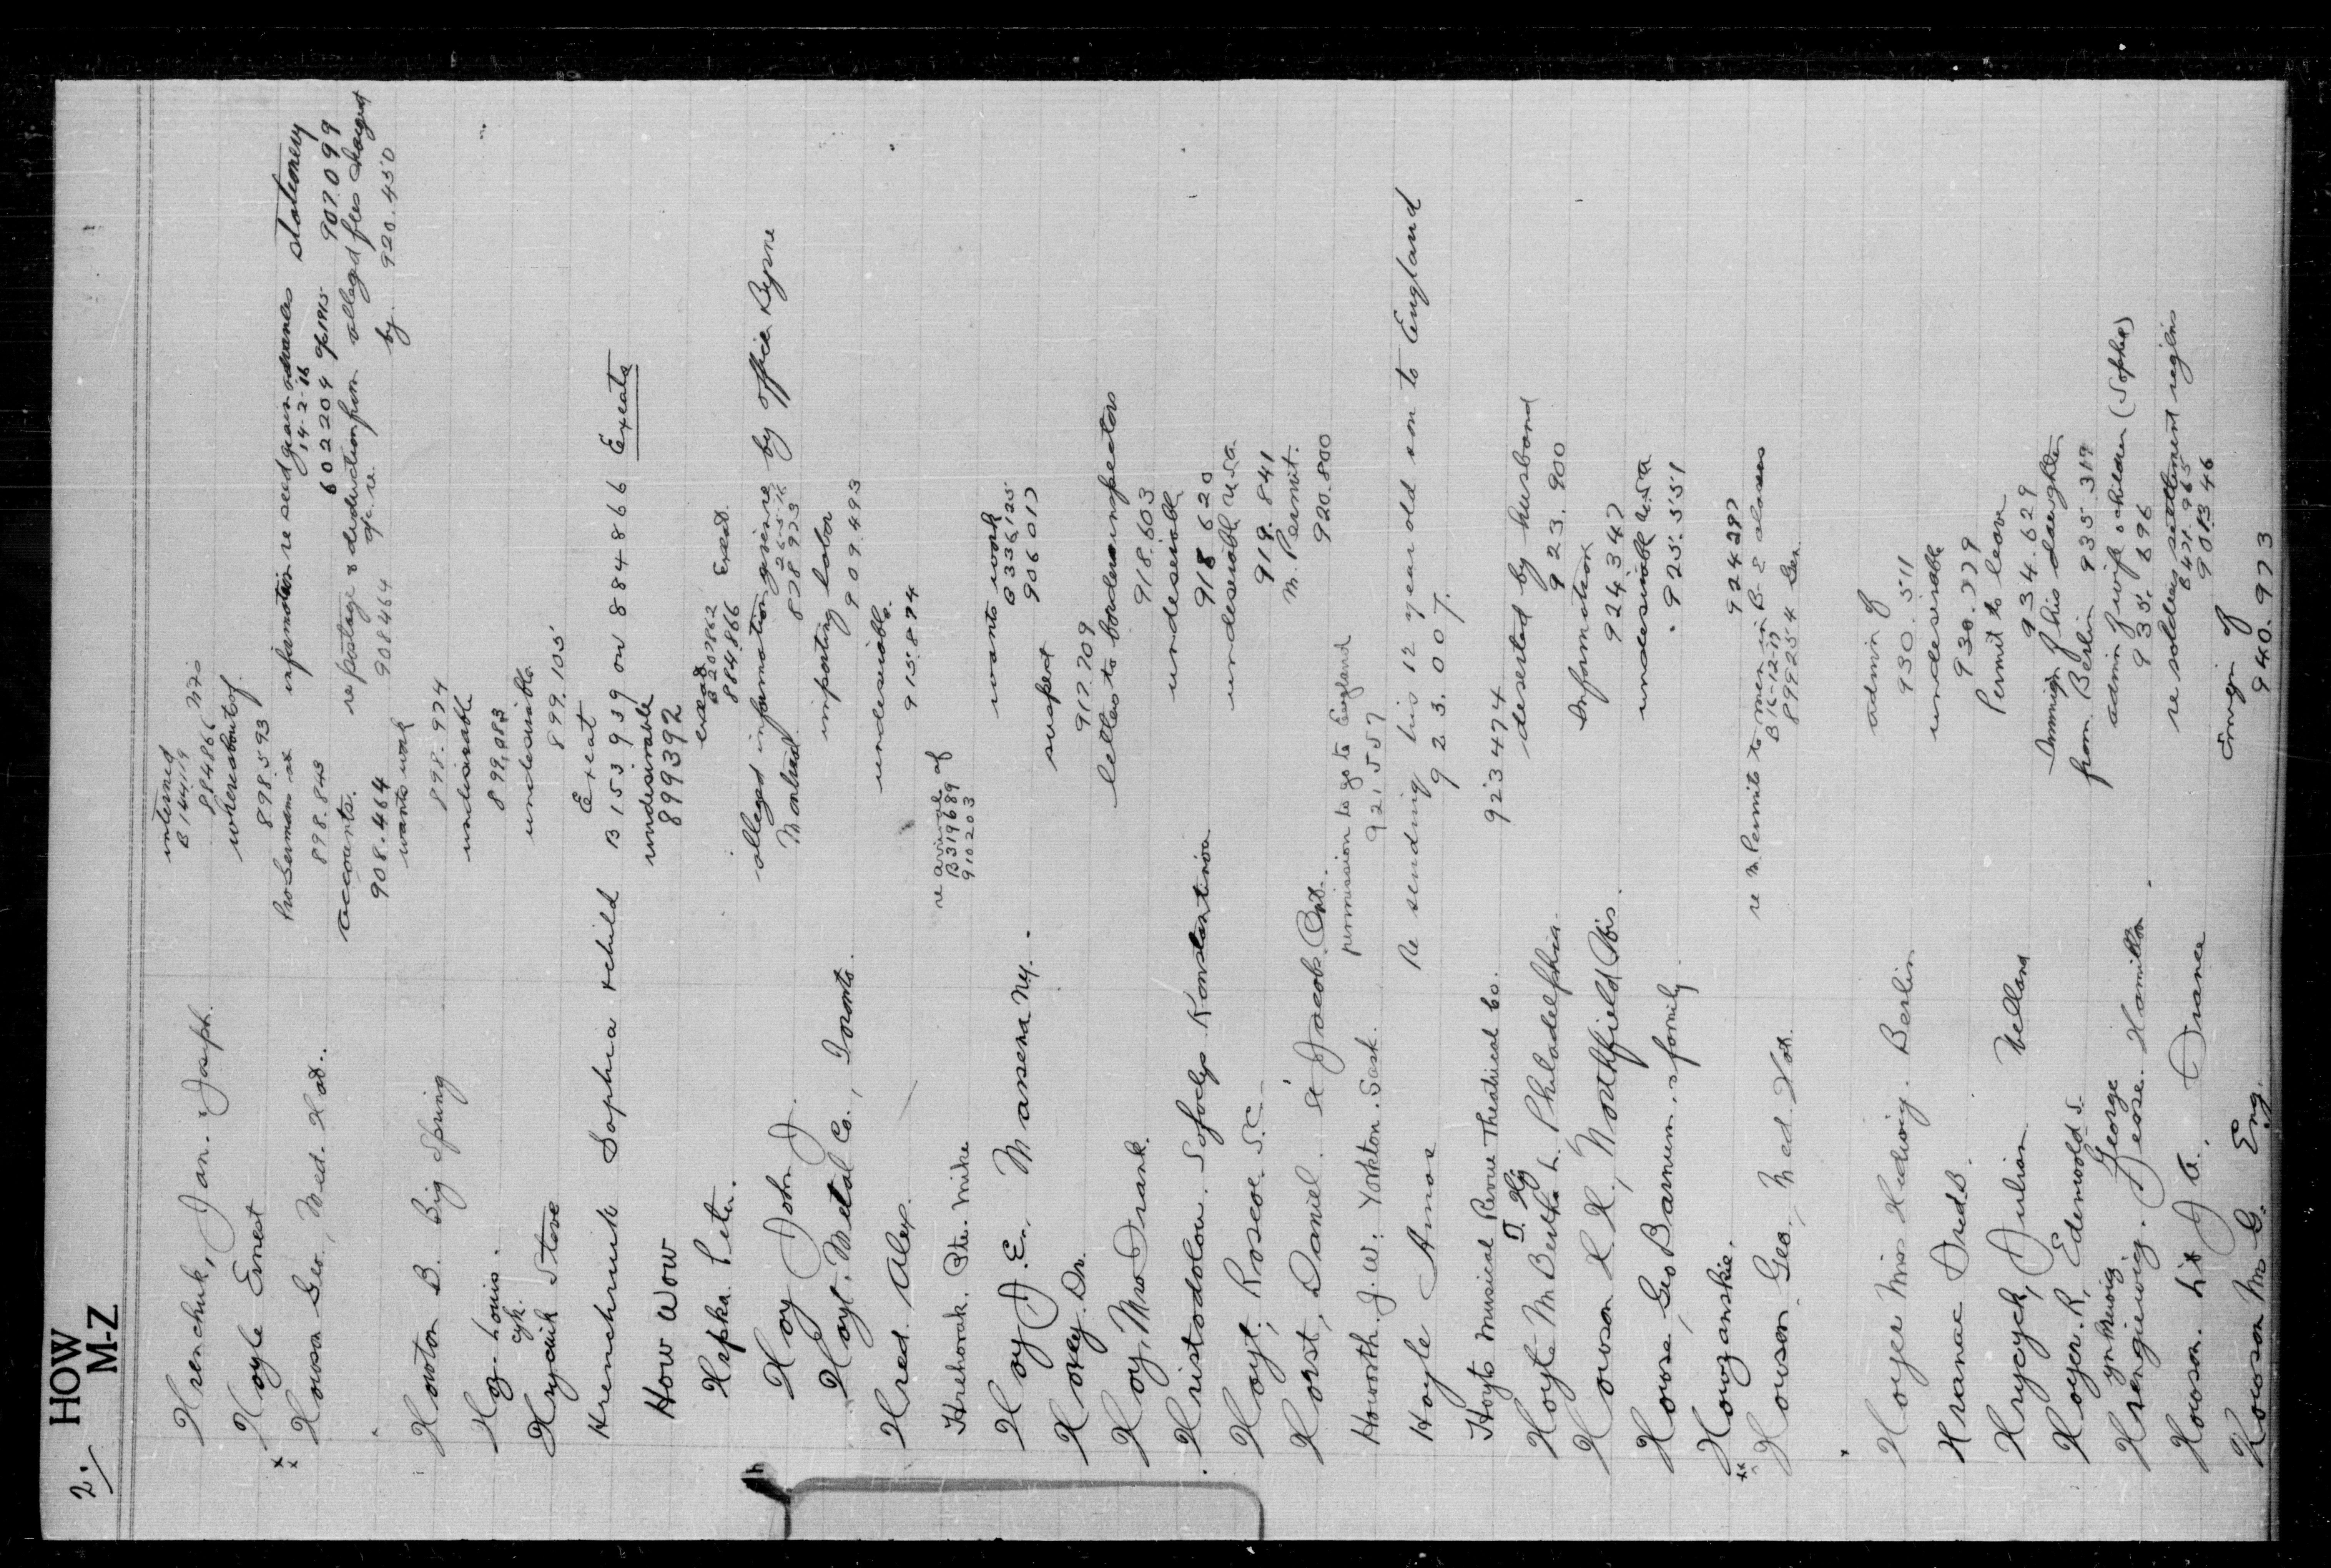 2. HOW
M-Z
Hrenchuk, Jan. & Joseph. interned
B 144119
884866
Hoyle Ernest whereabouts of
898.593
x x Howson Geo., Med. Hat. Pro German at information re seed grain advances stationery
898.843 14-2-16
602204 907.099
accounts. re postage & deduction from alleged files charged
908.464 908464 a/c re. by. 920.450
Howton B. Big Spring wants work
898.974
Hoy. Louis. undesirable
899,083
Hryciuk Steve undesirable
899.105
Exeat
Hrenchuik Sophia & child B 153939 on 884866 Exeats
How Wow undesirable
899392
Hrpka Peter. exeat
B 207862 Exeat
884866
Hoy John J. alleged information given re by office Byrne
Montreal 26-5-16
878973
Hoyt. Metal Co., Toronto. importing labor
909.493
Hred. Alex. undesirable
915.874
Hrehorak. Pte. Mike re arrival of
B319689
910203
Hoy J. E., Massena N.Y. wants work
B 336125
906017
Hovey Dr. suspect
917.709
Hoy, Mrs Frank. letter to border inspectors
918.603
Hristodolou. Sofoclys Konstantinon undesirable
918 620
Hoyt, Roscoe S.C. undesirable U.S.A.
919.841
Horst, Daniel. St Jacobs. Ont. M. Permit.
920.800
Howorth. J. W. Yorkton. Sask. permission to go to England
921557
Hoyle Amos Re sending his 12 year old son to England
923.007.
Hoyts Musical Revue Theatrical Co. 923474
Hoyte M Bertha L. Philadelphia deserted by husband
923.900
Howson H H, Northfield Wis. Information
924347
Howse, Geo Barnum. & family undesirable U.S.A.
925.551
Howzanskie. 924387
xx Howson, Geo., Med. Hat. re M. Permits to men in B- E classes
B 16-12-17
899254 Gen.
Hoyer Mrs Hedwig. Berlin admin of
930.511
Hranac Fred B. undesirable
930.779
Hrycyck, Julian Welland Permit to leave
934.629
Hoyer. R, Edenwold S. Immign of his daughter
from Berlin 935.319
George
Hrengiewicz. Jesse. Hamilton admin of wife & children (Sophie)
935.696
Howson. Lt J A. France re soldiers settlement reglns
B 471.965
901346
Howson M G. Eng. Immgn of
940.973